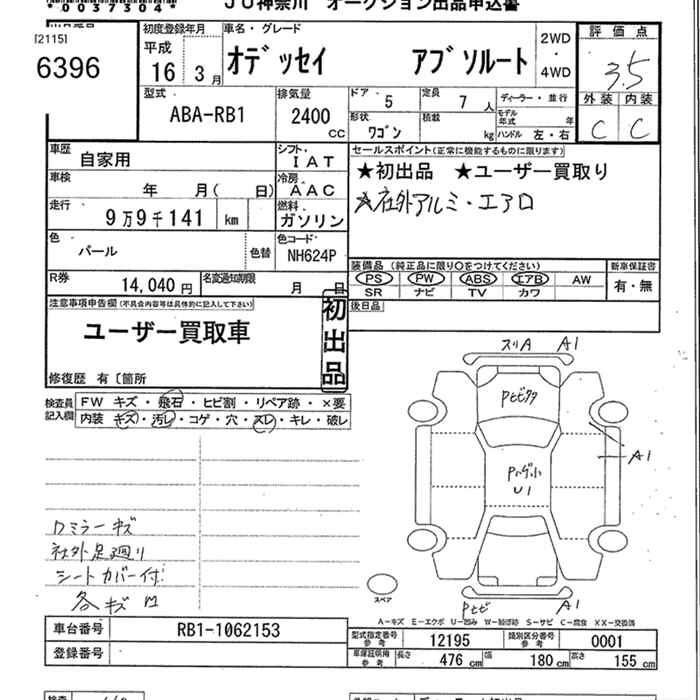 *0037304*
JU神奈川 オークション出品申込書
[2115]
6396
初度登録年月
平成
16 3月
車名・グレード
オデッセイ アブソルート
2WD
・
4WD
評価点
3.5
外装 内装
C C
型式
ABA-RB1
排気量
2400
CC
ドア 5
定員 7人
ディーラー・並行
形状 ワゴン
積載 kg
モデル年式 年
ハンドル 左・右
車歴 自家用
シフト IAT
車検 年 月( 日)
冷房 AAC
走行 9万9千141 km
燃料 ガソリン
色 パール
色替
色コード NH624P
R券 14,040円
名変通知期限 月 日
セールスポイント(正常に機能するものに限ります)
★初出品 ★ユーザー買取り
★社外アルミ・エアロ
装備品(純正品に限り○をつけてください)
PS PW ABS エアB AW
SR ナビ TV カワ
新車保証書
有・無
後日品
注意事項申告欄(不具合内容等は具体的に記入して下さい)
ユーザー買取車
初出品
修復歴 有〔箇所
検査員記入欄
FW キズ・飛石・ヒビ割・リペア跡・×要
内装 キズ・汚レ・コゲ・穴・スレ・キレ・破レ
スリA A1
A1
U1
A1
ロミラーキズ
社外足廻り
シートカバー付
各キズ
スペア
A-キズ E-エクボ U-凹み W-補修跡 S-サビ C-腐食 XX-交換済
車台番号 RB1-1062153
登録番号
型式指定番号 参考 12195
類別区分番号 参考 0001
車庫証明用 参考 長さ 476cm 幅 180cm 高さ 155cm